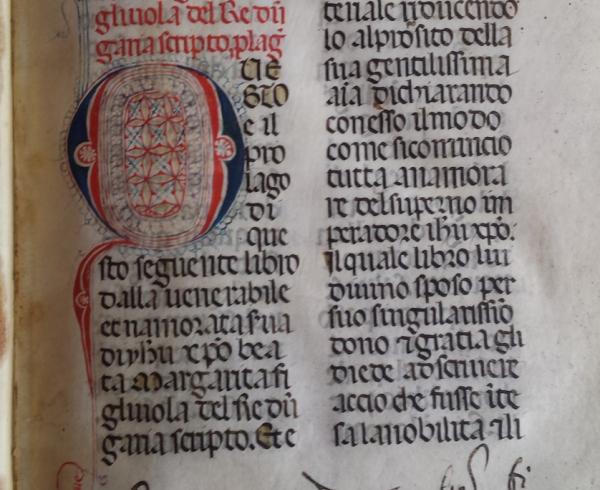 gliuola del Re dũ
garia scripto. plag̃
QVE
STO
e il
pro
lago
di
que
sto seguente libro
dalla uenerabile
et namorata s̃ua
di yhũ xp̃o bea
ta Margarita fi
gliuola del Re dũ
garia scripto. Et e
lo alpꝛo͂sito della
sua gentilissima
aĩa dichiarando
con esso il modo
come si comincio
tutta anamora
re del superno im
peradoꝛe ihũ xp̃o.
Il quale libro lui
diuino sposo per
suo singularissĩo
dono ⁊ gratia gli
diede ad scriuere
accio che fusse ĩte
sa la nobilita ⁊ li